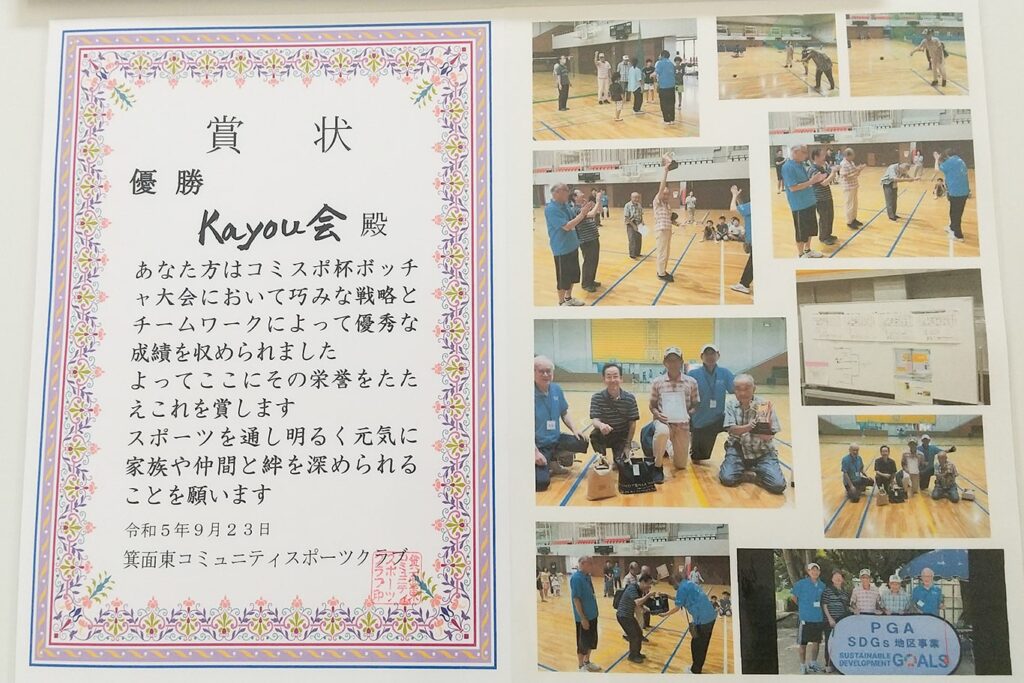 賞　状
優勝
Kayou会 殿
あなた方はコミスポ杯ボッチ
ャ大会において巧みな戦略と
チームワークによって優秀な
成績を収められました
よってここにその栄誉をたた
えこれを賞します
スポーツを通し明るく元気に
家族や仲間と絆を深められる
ことを願います
令和5年9月23日
箕面東コミュニティスポーツクラブ
PGA
SDGs 地区事業
SUSTAINABLE
DEVELOPMENT GOALS